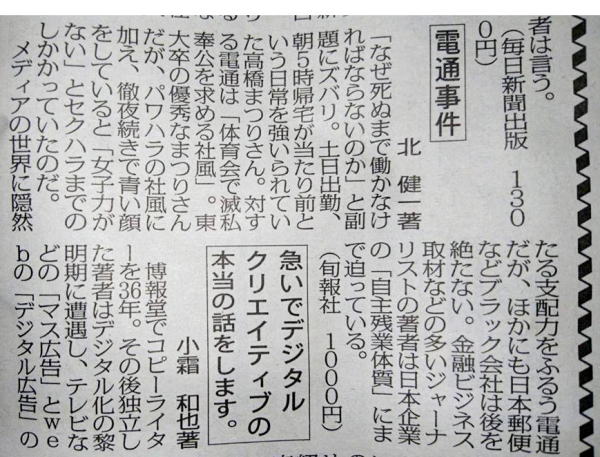 者は言う。
(毎日新聞出版 130
0円)
電通事件
北 健一著
「なぜ死ぬまで働かなけ
ればならないのか」と副
題にズバリ。土日出勤、
朝5時帰宅が当たり前と
いう日常を強いられてい
た高橋まつりさん。対す
る電通は「体育会で滅私
奉公を求める社風」。東
大卒の優秀なまつりさん
だが、パワハラの社風に
加え、徹夜続きで青い顔
をしていると「女子力が
ない」とセクハラまでの
しかかっていたのだ。
メディアの世界に隠然
たる支配力をふるう電通
だが、ほかにも日本郵便
などブラック会社は後を
絶たない。金融ビジネス
取材などの多いジャーナ
リストの著者は日本企業
の「自主残業体質」にま
で迫っている。
(旬報社 1000円)
急いでデジタル
クリエイティブの
本当の話をします。
小霜 和也著
博報堂でコピーライタ
ーを36年。その後独立し
た著者はデジタル化の黎
明期に遭遇し、テレビな
どの「マス広告」とwe
bの「デジタル広告」の